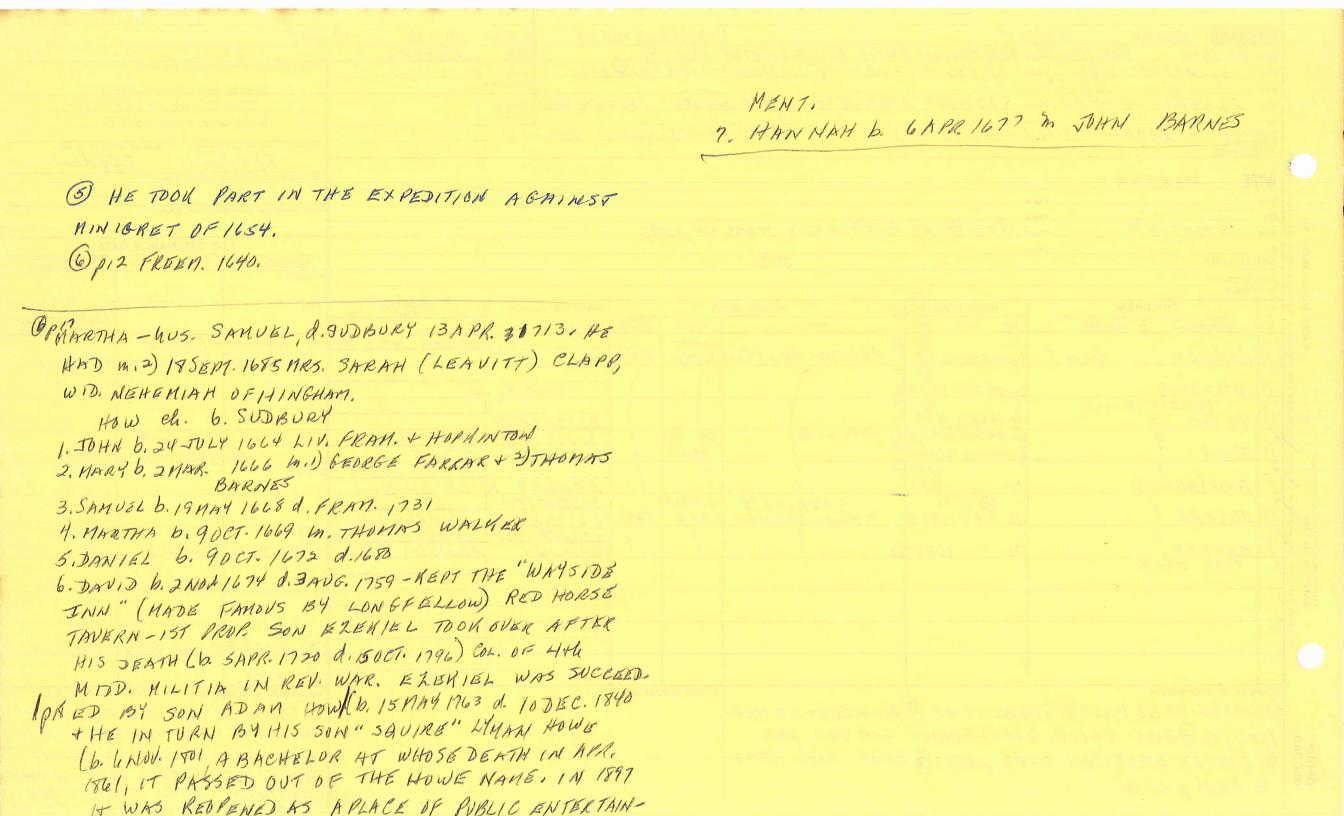 ⑤ HE TOOK PART IN THE EXPEDITION AGAINST
NINIGRET OF 1654.
⑥ p12 FREEM. 1640.
MARTHA - HUS. SAMUEL, d. SUDBURY 13 APR. 1713. HE
HAD m. 2) 18 SEPT. 1685 MRS. SARAH (LEAVITT) CLAPP,
WID. NEHEMIAH OF HINGHAM.
HOW ch. b. SUDBURY
1. JOHN b. 24 JULY 1664 LIV. FRAM. + HOPKINTON
2. MARY b. 2 MAR. 1666 m. 1) GEORGE FARRAR + 2) THOMAS
BARNES
3. SAMUEL b. 19 MAY 1668 d. FRAM. 1731
4. MARTHA b. 9 OCT. 1669 m. THOMAS WALKER
5. DANIEL b. 9 OCT. 1672 d. 1680
6. DAVID b. 2 NOV 1674 d. 3 AUG. 1759 - KEPT THE "WAYSIDE
INN" (MADE FAMOUS BY LONGFELLOW) RED HORSE
TAVERN - 1ST PROP. SON EZEKIEL TOOK OVER AFTER
HIS DEATH (b. 5 APR. 1720 d. 15 OCT. 1796) COL. OF 4th
MIDD. MILITIA IN REV. WAR. EZEKIEL WAS SUCCEED-
ED BY SON ADAM HOW (b. 15 MAY 1763 d. 10 DEC. 1840
+ HE IN TURN BY HIS SON "SQUIRE" LYMAN HOWE
(b. 6 NOV. 1801, A BACHELOR AT WHOSE DEATH IN APR.
1861, IT PASSED OUT OF THE HOWE NAME. IN 1897
IT WAS REOPENED AS A PLACE OF PUBLIC ENTERTAIN-
MENT.
7. HANNAH b. 6 APR 1677 m JOHN BARNES